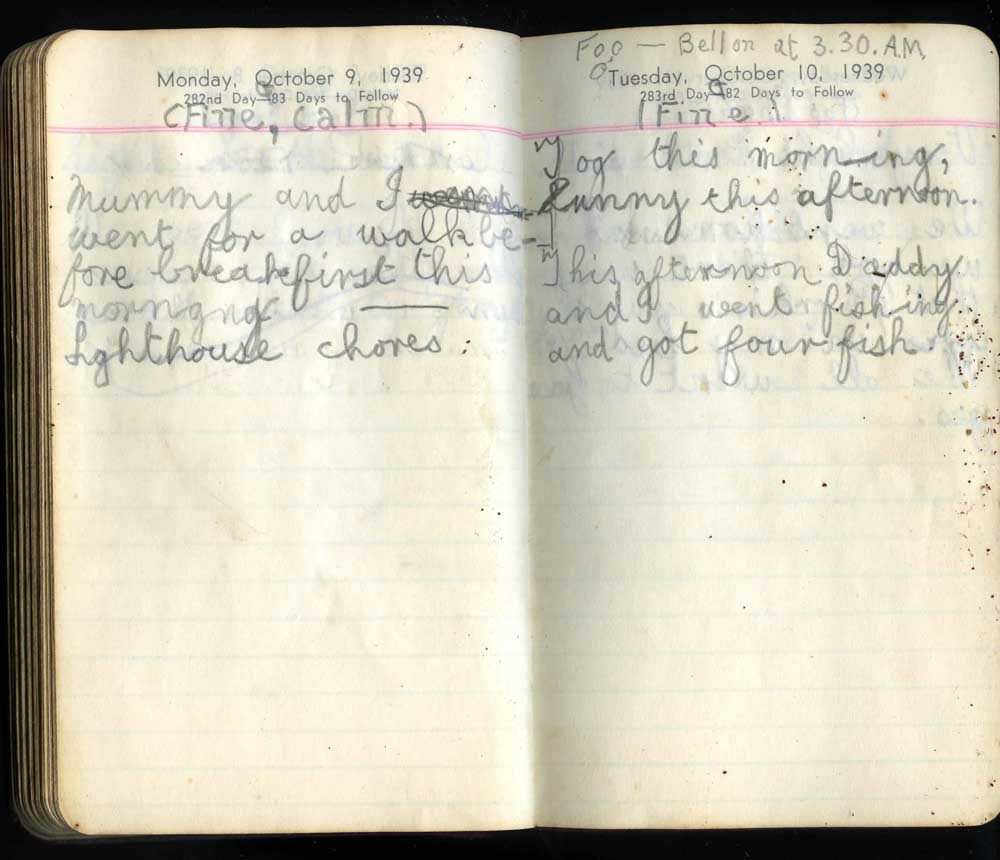 Monday, October 9, 1939
282nd Day—83 Days to Follow
(Fine, Calm.)
Mummy and I
went for a walk be-
fore breakfirst this
morngng
Lighthouse chores.
Fog — Bell on at 3.30. A.M.
Tuesday, October 10, 1939
283rd Day—82 Days to Follow
(Fine.)
Fog this morning,
Sunny this afternoon.
This afternoon Daddy
and I went fishing
and got four fish.